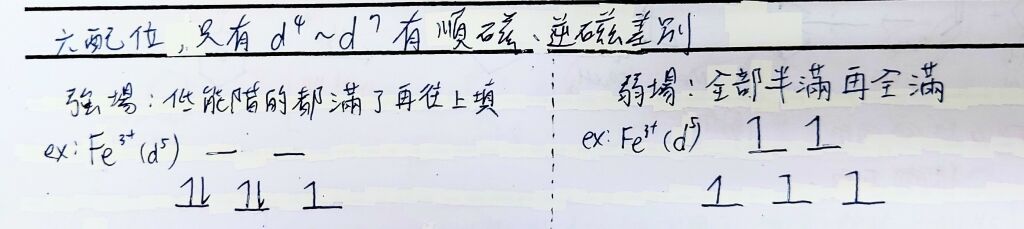 六配位，只有 d⁴～d⁷ 有順磁、逆磁差別
強場：低能階的都滿了再往上填
ex: Fe³⁺(d⁵)
弱場：全部半滿再全滿
ex: Fe³⁺(d⁵)